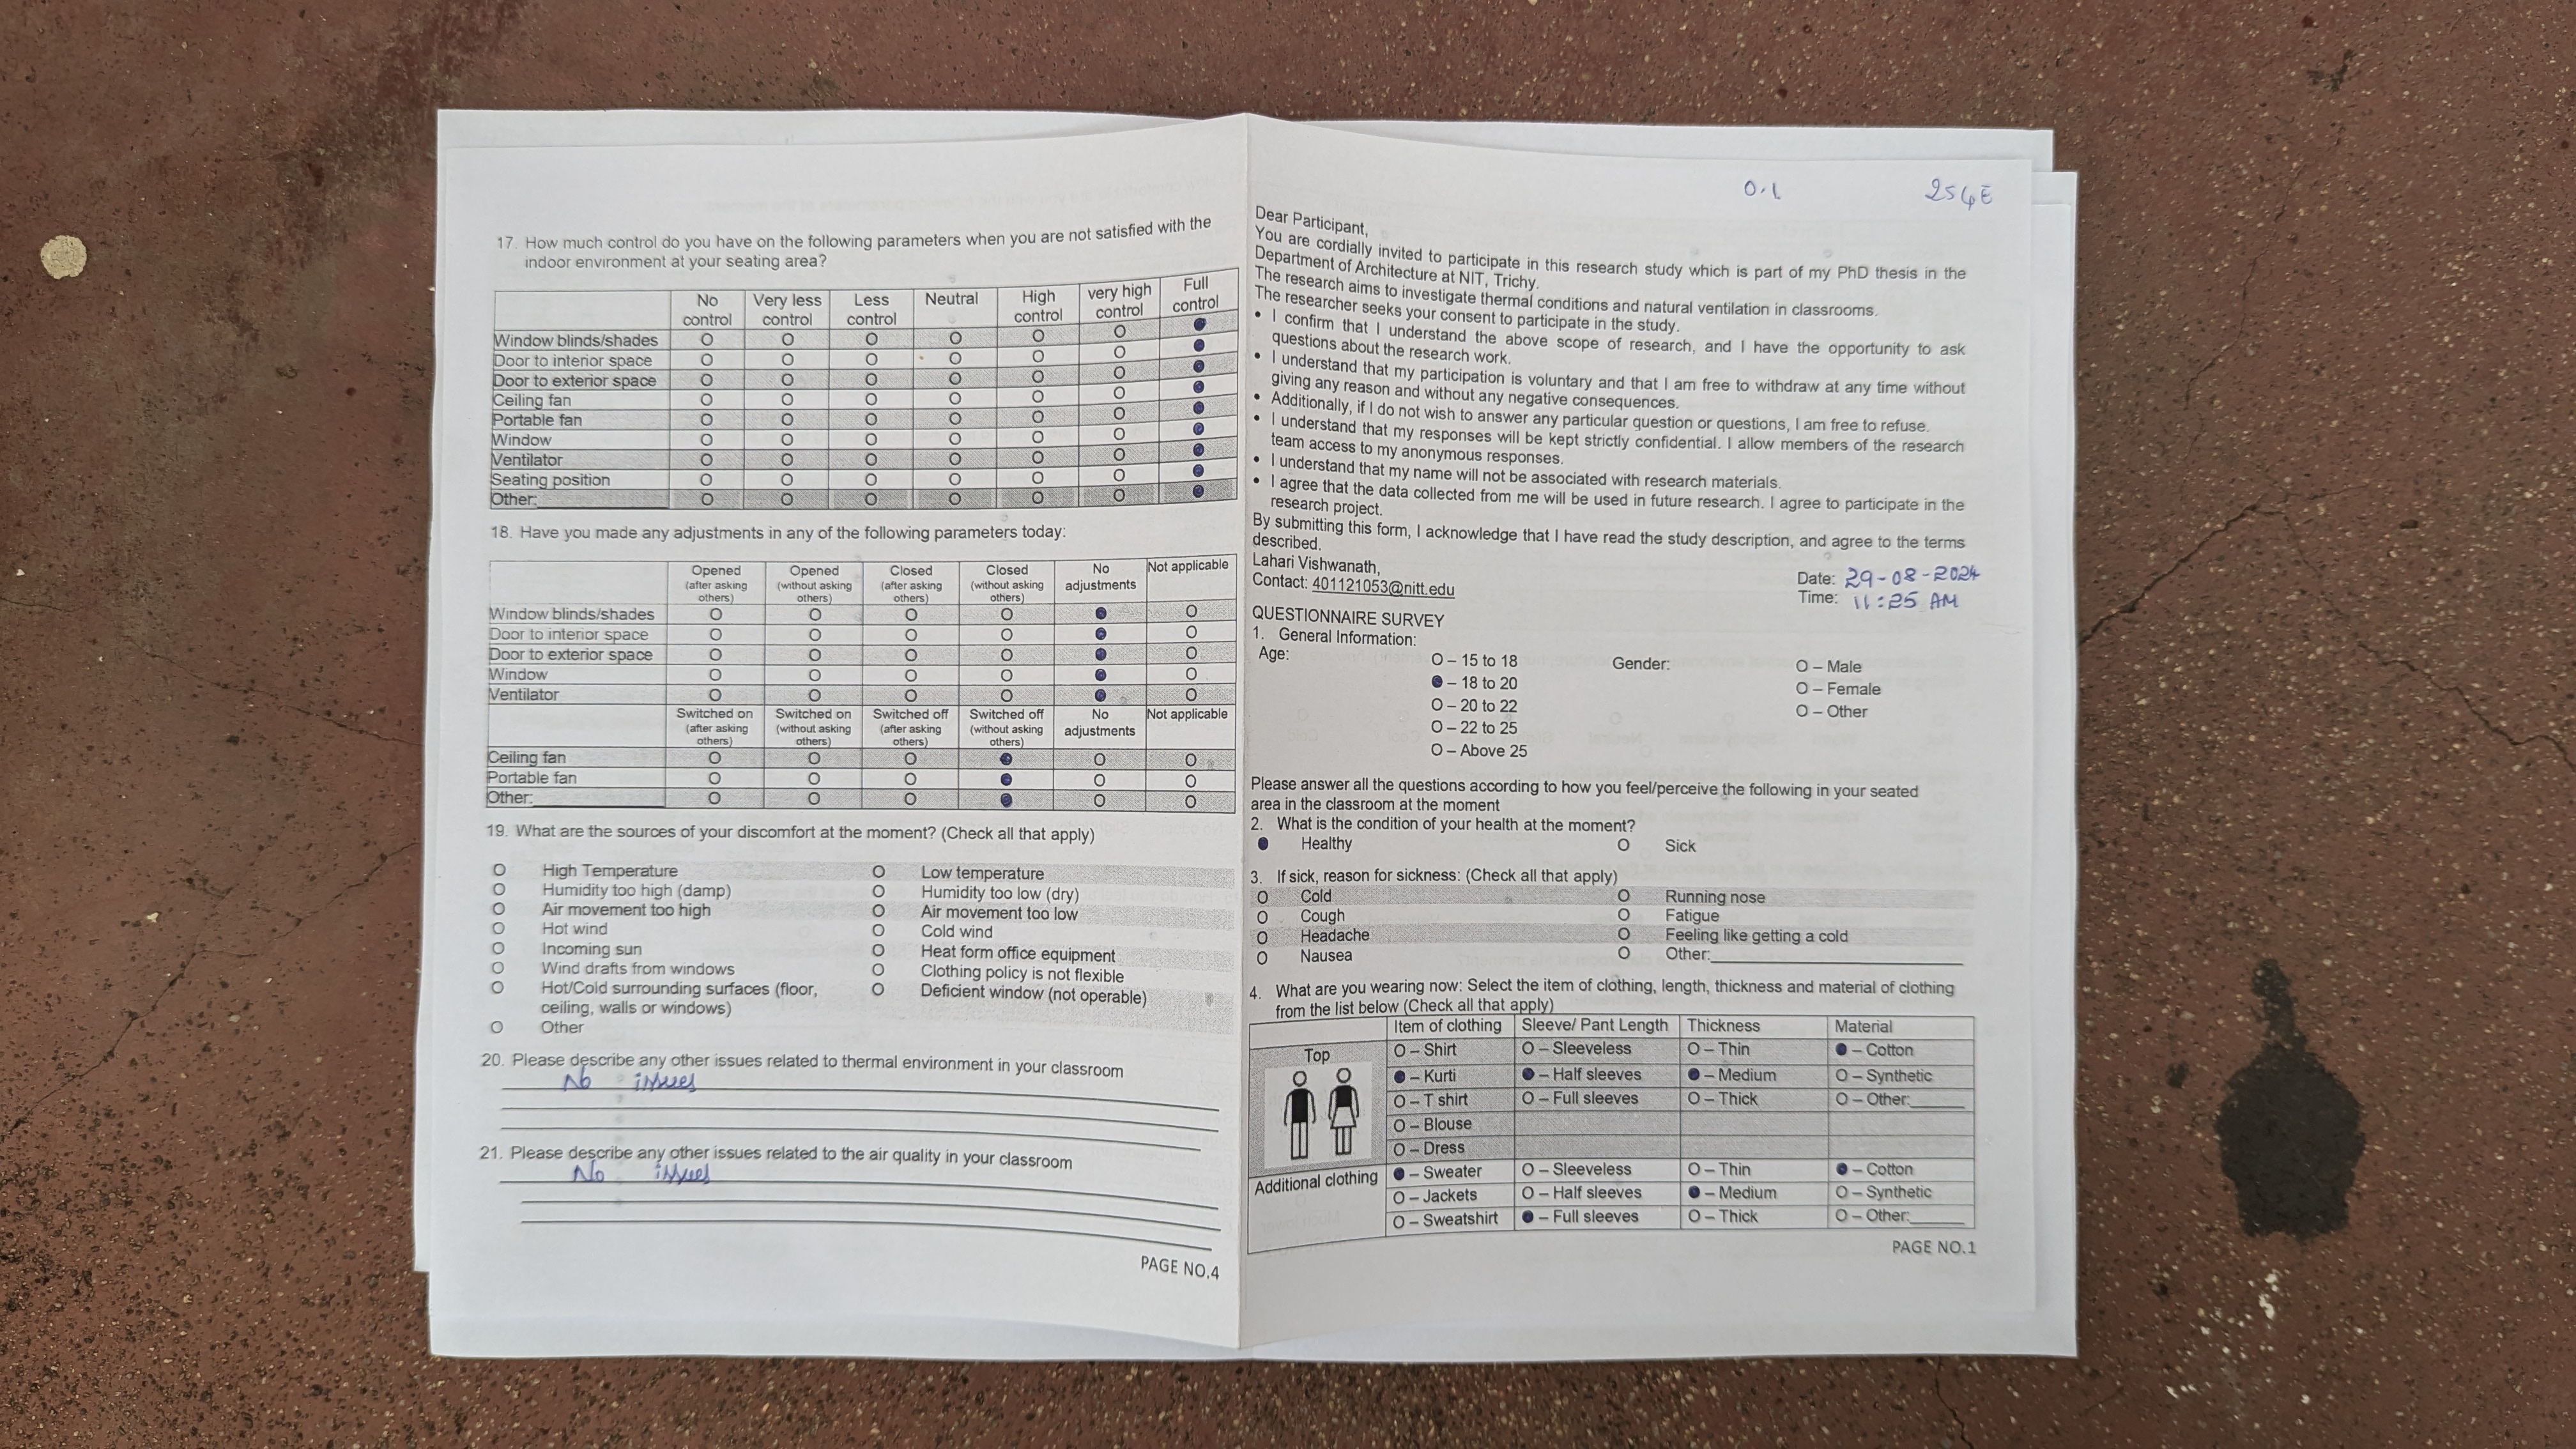 17. How much control do you have on the following parameters when you are not satisfied with the
indoor environment at your seating area?
No control Very less control Less control Neutral High control very high control Full control
Window blinds/shades O O O O O O ●
Door to interior space O O O O O O ●
Door to exterior space O O O O O O ●
Ceiling fan O O O O O O ●
Portable fan O O O O O O ●
Window O O O O O O ●
Ventilator O O O O O O ●
Seating position O O O O O O ●
Other:________ O O O O O O ●
18. Have you made any adjustments in any of the following parameters today:
Opened (after asking others) Opened (without asking others) Closed (after asking others) Closed (without asking others) No adjustments Not applicable
Window blinds/shades O O O O ● O
Door to interior space O O O O ● O
Door to exterior space O O O O ● O
Window O O O O ● O
Ventilator O O O O ● O
Switched on (after asking others) Switched on (without asking others) Switched off (after asking others) Switched off (without asking others) No adjustments Not applicable
Ceiling fan O O O ● O O
Portable fan O O O ● O O
Other:________ O O O ● O O
19. What are the sources of your discomfort at the moment? (Check all that apply)
O High Temperature O Low temperature
O Humidity too high (damp) O Humidity too low (dry)
O Air movement too high O Air movement too low
O Hot wind O Cold wind
O Incoming sun O Heat form office equipment
O Wind drafts from windows O Clothing policy is not flexible
O Hot/Cold surrounding surfaces (floor, O Deficient window (not operable)
ceiling, walls or windows)
O Other
20. Please describe any other issues related to thermal environment in your classroom
No issues
21. Please describe any other issues related to the air quality in your classroom
No issues
PAGE NO.4
0.1 254E
Dear Participant,
You are cordially invited to participate in this research study which is part of my PhD thesis in the
Department of Architecture at NIT, Trichy.
The research aims to investigate thermal conditions and natural ventilation in classrooms.
The researcher seeks your consent to participate in the study.
• I confirm that I understand the above scope of research, and I have the opportunity to ask
questions about the research work.
• I understand that my participation is voluntary and that I am free to withdraw at any time without
giving any reason and without any negative consequences.
• Additionally, if I do not wish to answer any particular question or questions, I am free to refuse.
• I understand that my responses will be kept strictly confidential. I allow members of the research
team access to my anonymous responses.
• I understand that my name will not be associated with research materials.
• I agree that the data collected from me will be used in future research. I agree to participate in the
research project.
By submitting this form, I acknowledge that I have read the study description, and agree to the terms
described.
Lahari Vishwanath,
Contact: 401121053@nitt.edu
Date: 29-08-2024
Time: 11:25 AM
QUESTIONNAIRE SURVEY
1. General Information:
Age: O – 15 to 18 Gender: O – Male
● – 18 to 20 O – Female
O – 20 to 22 O – Other
O – 22 to 25
O – Above 25
Please answer all the questions according to how you feel/perceive the following in your seated
area in the classroom at the moment
2. What is the condition of your health at the moment?
● Healthy O Sick
3. If sick, reason for sickness: (Check all that apply)
O Cold O Running nose
O Cough O Fatigue
O Headache O Feeling like getting a cold
O Nausea O Other:________
4. What are you wearing now: Select the item of clothing, length, thickness and material of clothing
from the list below (Check all that apply)
Item of clothing Sleeve/ Pant Length Thickness Material
Top O – Shirt O – Sleeveless O – Thin ● – Cotton
● – Kurti ● – Half sleeves ● – Medium O – Synthetic
O – T shirt O – Full sleeves O – Thick O – Other:______
O – Blouse
O – Dress
Additional clothing ● – Sweater O – Sleeveless O – Thin ● – Cotton
O – Jackets O – Half sleeves ● – Medium O – Synthetic
O – Sweatshirt ● – Full sleeves O – Thick O – Other:______
PAGE NO.1